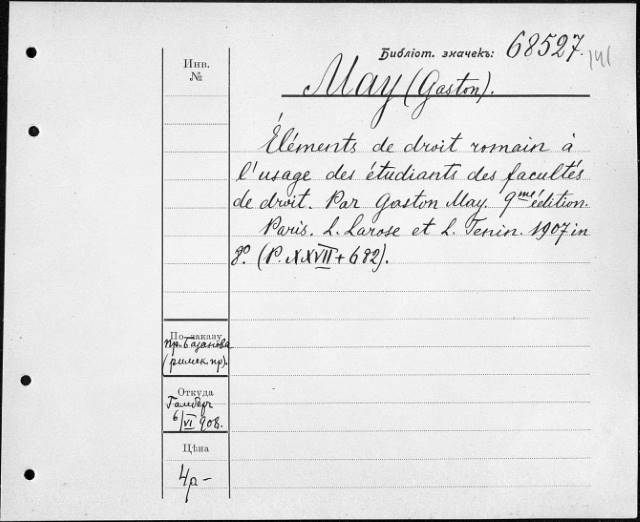 Библіот. значекъ: 68527.
141
Инв.
№
May (Gaston).
Éléments de droit romain à
l'usage des étudiants des facultés
de droit. Par Gaston May. 9me édition.
Paris. L. Larose et L. Tenin. 1907 in
8º. (P. XXVII + 682).
По заказу
пр. Базанова
(римск. пр).
Откуда
6/VI 908.
Цѣна
4р-